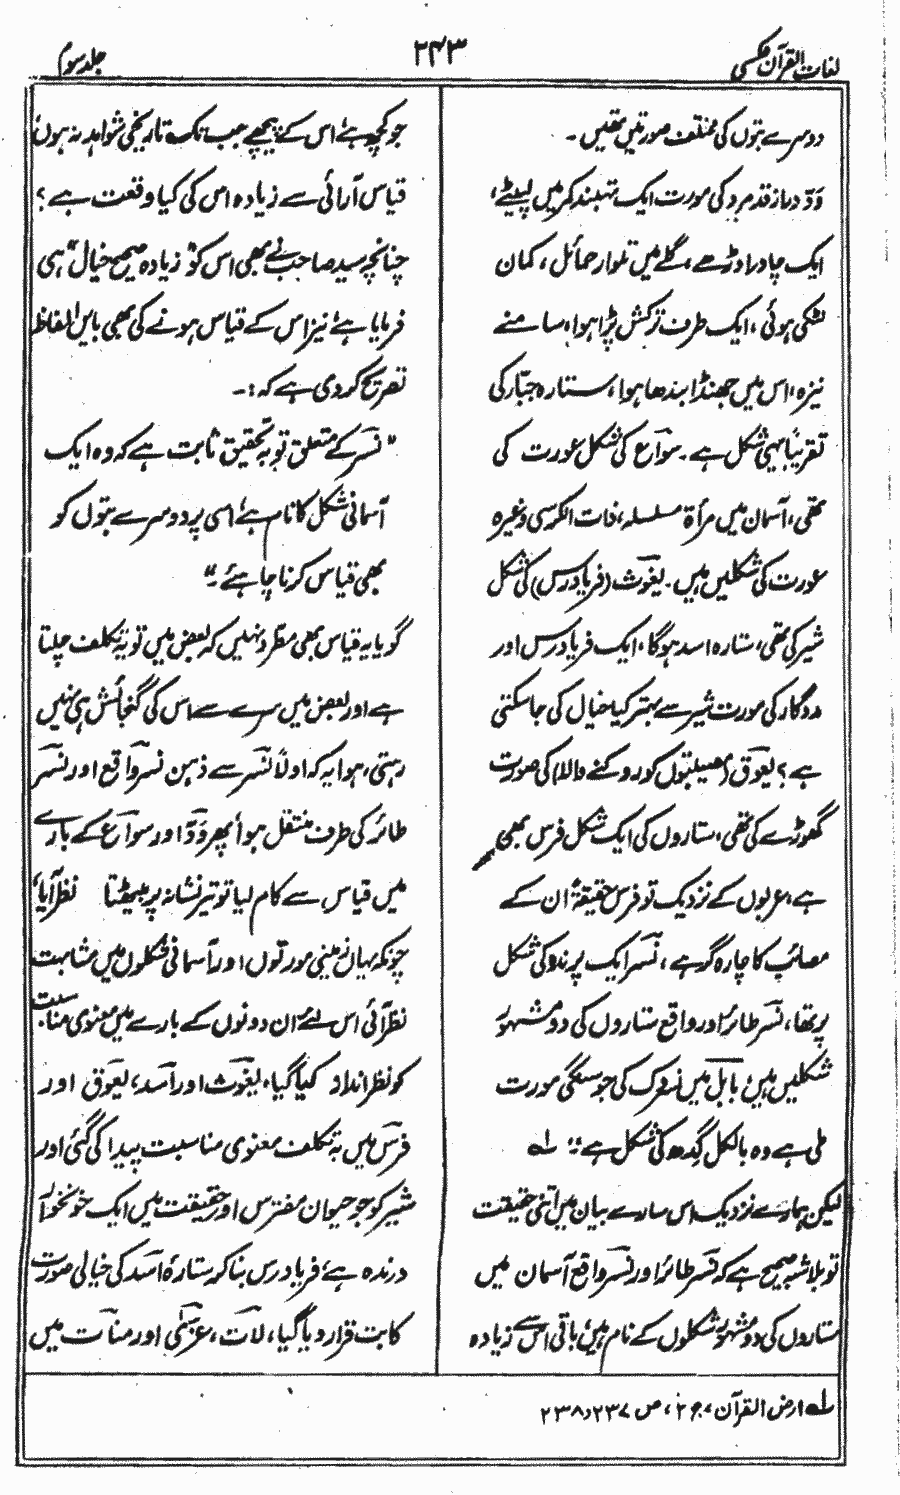 لغات القرآن عکسی
۲۴۳
جلد سوم
دوسرے بتوں کی مختلف صورتیں تھیں۔
وَدّ دراز قد مرد کی صورت ایک تہبند کمر میں لپیٹے،
ایک چادر اوڑھے، گلے میں تلوار حمائل، کمان
لٹکی ہوئی، ایک طرف ترکش پڑا ہوا، سامنے
نیزہ، اس میں جھنڈا بندھا ہوا، ستارہ جبّار کی
تقریباً یہی شکل ہے۔ سواع کی شکل عورت کی
تھی، آسمان میں مرأۃ مسلسلہ، ذات الکرسی وغیرہ
عورت کی شکلیں ہیں۔ یغوث (فریادرس) کی شکل
شیر کی تھی، ستارہ اسد ہوگا، ایک فریادرس اور
مددگار کی صورت شیر سے بہتر کیا خیال کی جاسکتی
ہے؟ یعوق (مصیبتوں کو روکنے والا) کی صورت
گھوڑے کی تھی، ستاروں کی ایک شکل فرس بھی
ہے، عربوں کے نزدیک تو فرس حقیقۃً ان کے
مصائب کا چارہ گر ہے، نسر ایک پرند کی شکل
پر تھا، نسر طائر اور واقع ستاروں کی دو مشہور
شکلیں ہیں، بابل میں نسروک کی جو سنگی مورت
ملی ہے وہ بالکل گدھ کی شکل ہے"۔ لہ
لیکن ہمارے نزدیک اس سارے بیان میں اتنی حقیقت
تو بلاشبہ صحیح ہے کہ نسر طائر اور نسر واقع آسمان میں
ستاروں کی دو مشہور شکلوں کے نام ہیں، باقی اس سے زیادہ
جو کچھ ہے، اس کے پیچھے جب تک تاریخی شواہد نہ ہوں،
قیاس آرائی سے زیادہ اس کی کیا وقعت ہے؟
چنانچہ سید صاحب نے بھی اس کو "زیادہ صحیح خیال" ہی
فرمایا ہے، نیز اس کے قیاس ہونے کی بھی بایں الفاظ
تصریح کردی ہے کہ:۔
"نسر کے متعلق تو بہ تحقیق ثابت ہے کہ وہ ایک
آسمانی شکل کا نام ہے، اسی پر دوسرے بتوں کو
بھی قیاس کرنا چاہئے۔"
گویا یہ قیاس بھی مطرد نہیں کہ بعض میں تو بہ تکلف چلتا
ہے اور بعض میں سرے سے اس کی گنجائش ہی نہیں
رہتی، ہوا یہ کہ اولاً نسر سے ذہن نسر واقع اور نسر
طائر کی طرف منتقل ہوا پھر وَدّ اور سواع کے بارے
میں قیاس سے کام لیا تو تیر نشانہ پر بیٹھتا نظر آیا،
چونکہ یہاں زمینی مورتوں اور آسمانی شکلوں میں مشابہت
نظر آئی اس لئے ان دونوں کے بارے میں معنوی مناسبت
کو نظر انداز کیا گیا، یغوث اور اسد، یعوق اور
فرس میں بہ تکلف معنوی مناسبت پیدا کی گئی اور
شیر کو جو حیوان مفترس اور حقیقت میں ایک خونخوار
درندہ ہے، فریادرس بنا کر ستارۂ اسد کی خیالی صورت
کا بت قرار دیا گیا، لات، عزّٰی اور منات میں
لہ ارض القرآن، ج ۲، ص ۲۳۷ و ۲۳۸